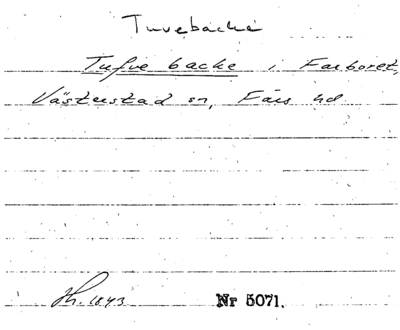 Tuvebacke
Tufve backe i Farboret,
Västerstad sn, Färs hd
Hh. 1843 Nr 5071.